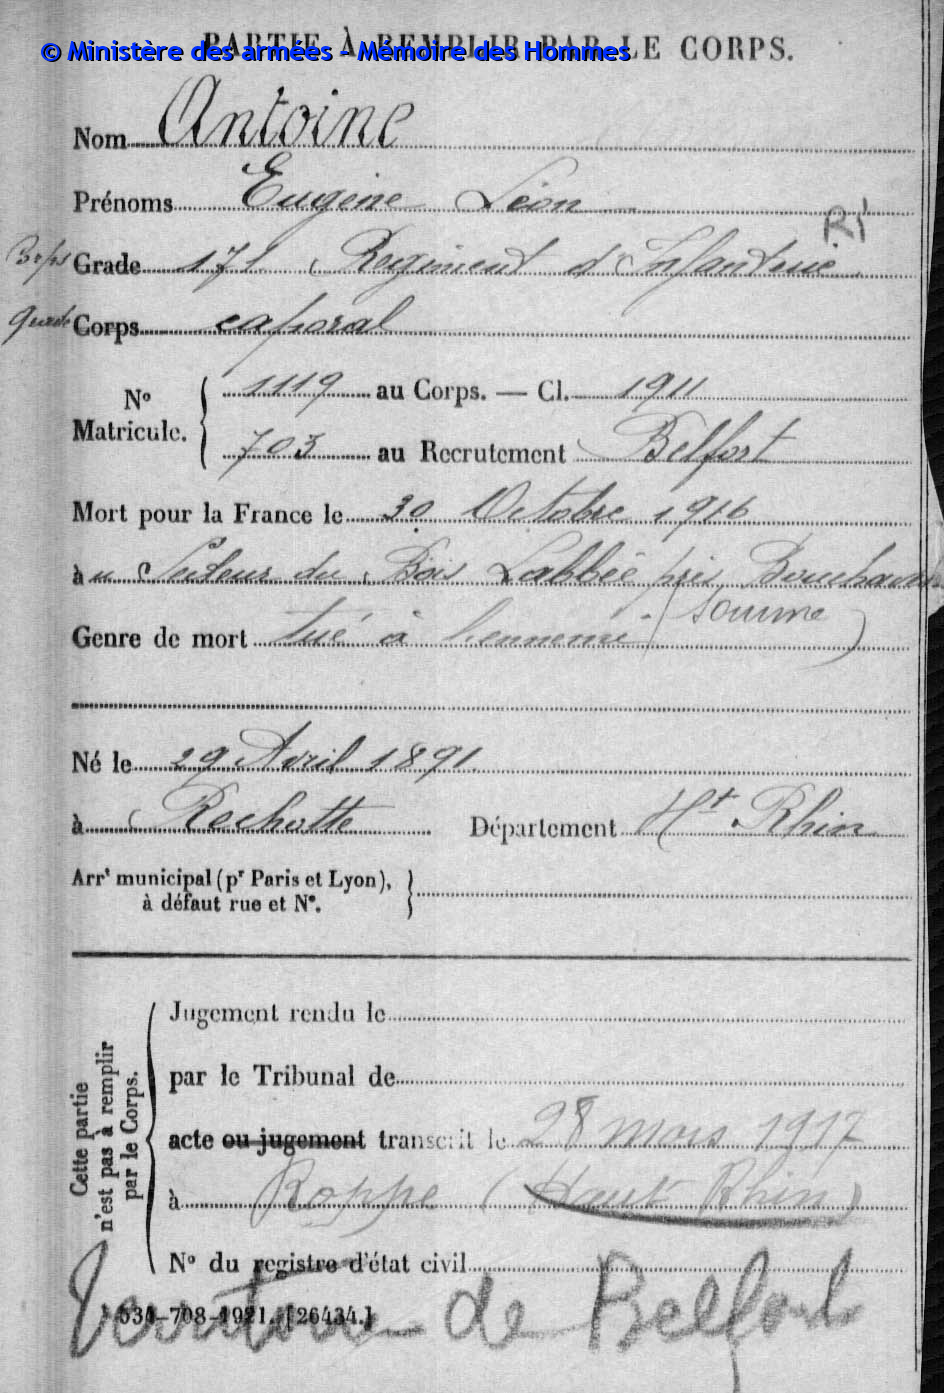 PARTIE À REMPLIR PAR LE CORPS.
© Ministère des armées - Mémoire des Hommes
Nom Antoine
Prénoms Eugène Léon
R I
Corps Grade 171 Régiment d'Infanterie
grade Corps caporal
No Matricule. 1119 au Corps. — Cl. 1911
703 au Recrutement Belfort
Mort pour la France le 30 Octobre 1916
à u Secteur du Bois Labbée près
(Somme)
Genre de mort tué à l'ennemi
Né le 29 Avril 1891
à Rechotte Département Ht Rhin
Arrt municipal (pr Paris et Lyon),
à défaut rue et No.
Cette partie
n'est pas à remplir
par le Corps.
Jugement rendu le
par le Tribunal de
acte ou jugement transcrit le 28 mars 1917
à Roppe (Haut Rhin)
No du registre d'état civil
534-708-1921. [26434.]
Territoire de Belfort